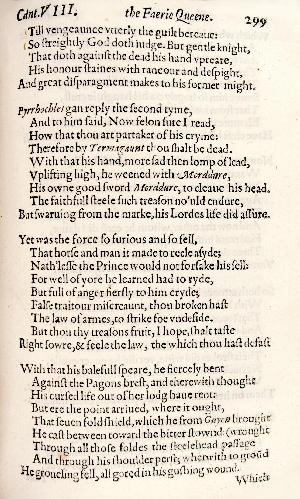 Cant. VIII. the Faerie Queene. 299
Till vengeaunce vtterly the guilt bereaue:
So streightly God doth iudge. But gentle knight,
That doth against the dead his hand vpreare,
His honour staines with rancour and despight,
And great disparagment makes to his former might.
Pyrrhochles gan reply the second tyme,
And to him said, Now felon sure I read,
How that thou art partaker of his cryme:
Therefore by Termagaunt thou shalt be dead.
With that his hand, more sad then lomp of lead,
Vplifting high, he weened with Morddure,
His owne good sword Morddure, to cleaue his head.
The faithfull steele such treason no'uld endure,
But swaruing from the marke, his Lordes life did assure.
Yet was the force so furious and so fell,
That horse and man it made to reele asyde;
Nath'lesse the Prince would not forsake his sell:
For well of yore he learned had to ryde,
But full of anger fiersly to him cryde;
False traitour miscreaunt, thou broken hast
The law of armes, to strike foe vndefide.
But thou thy treasons fruit, I hope, shalt taste
Right sowre, & feele the law, the which thou hast defast
With that his balefull speare, he fiercely bent
Against the Pagans brest, and therewith thought
His cursed life out of her lodg haue rent:
But ere the point arriued, where it ought,
That seuen fold shield, which he from Guyon brought
He cast between to ward the bitter stownd: (wrought
Through all those foldes the steelehead passage
And through his shoulder perst; wherwith to groūd
He groueling fell, all gored in his gushing wound.
Which